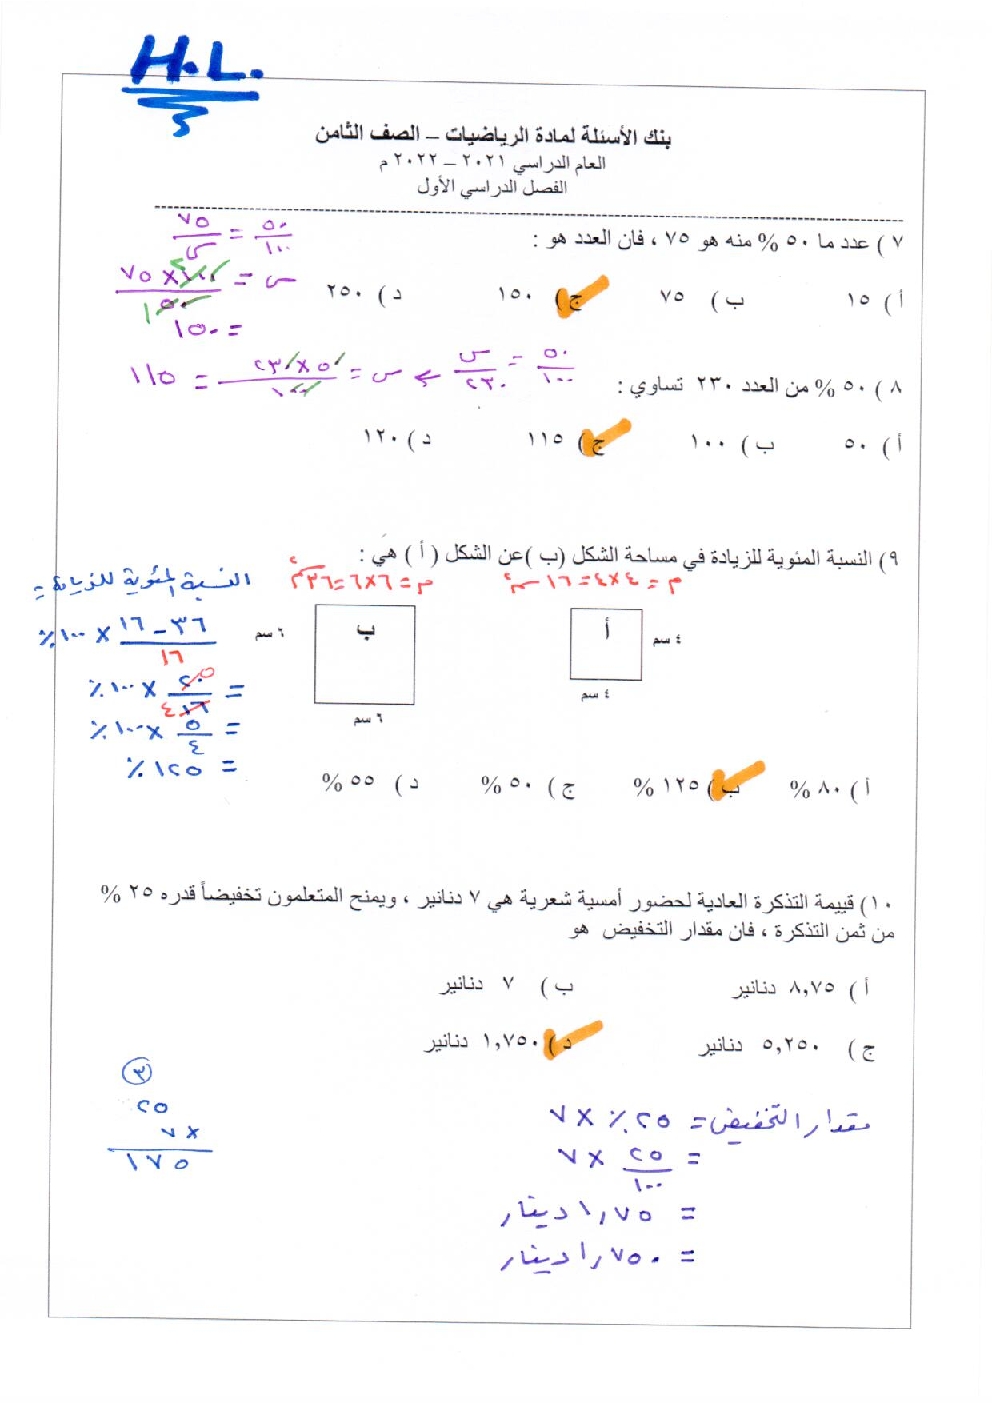 H.L.
بنك الأسئلة لمادة الرياضيات – الصف الثامن
العام الدراسي ٢٠٢١ – ٢٠٢٢ م
الفصل الدراسي الأول
٧ ) عدد ما ٥٠ % منه هو ٧٥ ، فان العدد هو :
٥٠/١٠٠ = ٧٥/س
س = ٧٥ × ١٠٠ / ٥٠
= ١٥٠
أ ) ١٥ ب ) ٧٥ ج ) ١٥٠ د ) ٢٥٠
٨ ) ٥٠ % من العدد ٢٣٠ تساوي :
٥٠/١٠٠ = س/٢٣٠ ⇐ س = ٥٠ × ٢٣٠ / ١٠٠ = ١١٥
أ ) ٥٠ ب ) ١٠٠ ج ) ١١٥ د ) ١٢٠
٩ ) النسبة المئوية للزيادة في مساحة الشكل ( ب ) عن الشكل ( أ ) هي :
م = ٤×٤ = ١٦ سم² م = ٦×٦ = ٣٦ سم²
النسبة المئوية للزيادة =
أ ٤ سم ب ٦ سم
٤ سم ٦ سم
٣٦ – ١٦ / ١٦ × ١٠٠ ٪
= ٢٠/١٦ × ١٠٠ ٪
= ٥/٤ × ١٠٠ ٪
= ١٢٥ ٪
أ ) ٨٠ % ب ) ١٢٥ % ج ) ٥٠ % د ) ٥٥ %
١٠ ) قييمة التذكرة العادية لحضور أمسية شعرية هي ٧ دنانير ، ويمنح المتعلمون تخفيضاً قدره ٢٥ %
من ثمن التذكرة ، فان مقدار التخفيض هو
أ ) ٨,٧٥ دنانير ب ) ٧ دنانير
ج ) ٥,٢٥٠ دنانير د ) ١,٧٥٠ دنانير
مقدار التخفيض = ٢٥ ٪ × ٧
= ٢٥/١٠٠ × ٧
= ١,٧٥ دينار
= ١,٧٥٠ دينار
٣
٢٥
× ٧
١٧٥